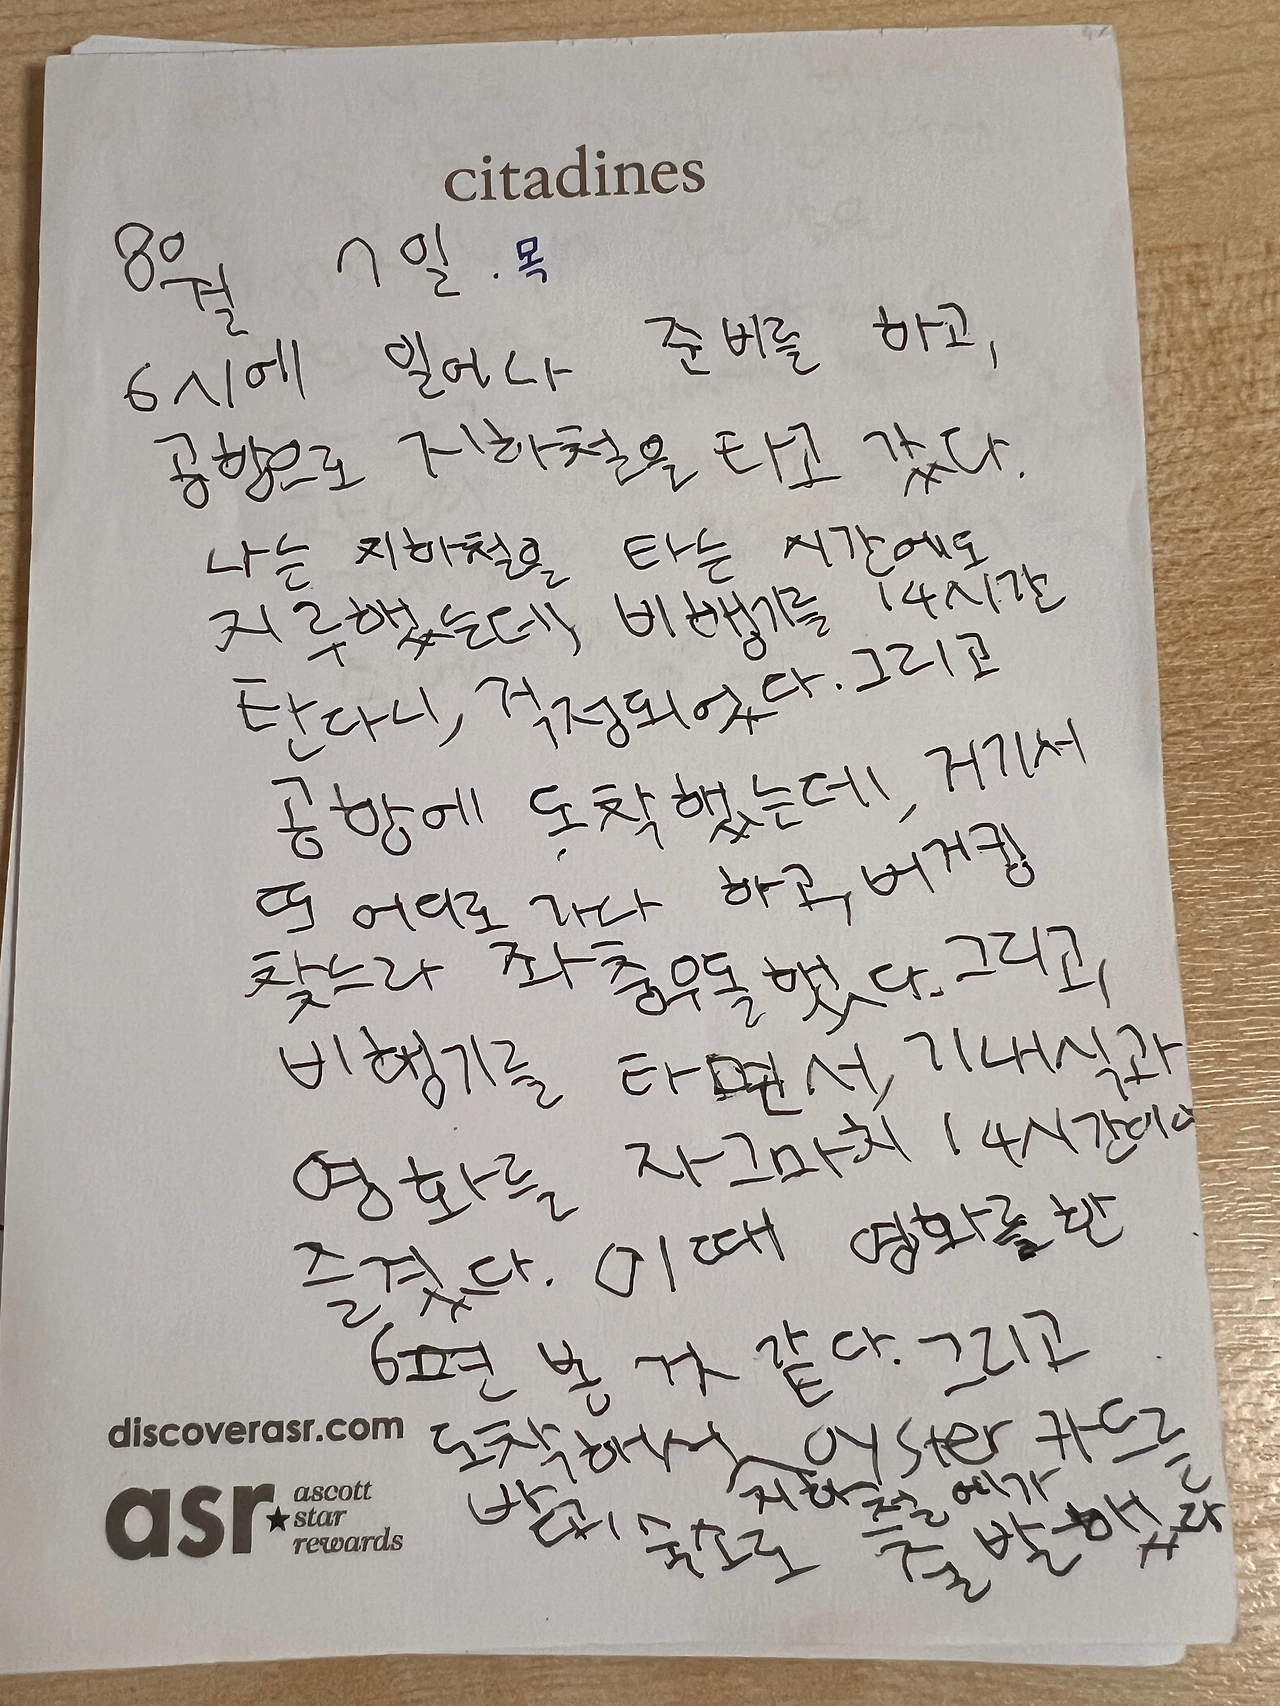 citadines
8월 7일.목
6시에 일어나 준비를 하고,
공항으로 지하철을 타고 갔다.
나는 지하철을 타는 시간에도
지루했는데, 비행기를 14시간
탄다니, 걱정되었다. 그리고
공항에 도착했는데, 거기서
또 어디로 가나 하고, 버거킹
찾느라 좌충우돌했다. 그리고,
비행기를 타면서, 기내식과
영화를 자그마치 14시간이나
즐겼다. 이때 영화를 한
6편 본 것 같다. 그리고
도착해서 oyster 카드를
지하철에가
받고, 숙소로 출발했다
discoverasr.com
asr ascott
star
rewards